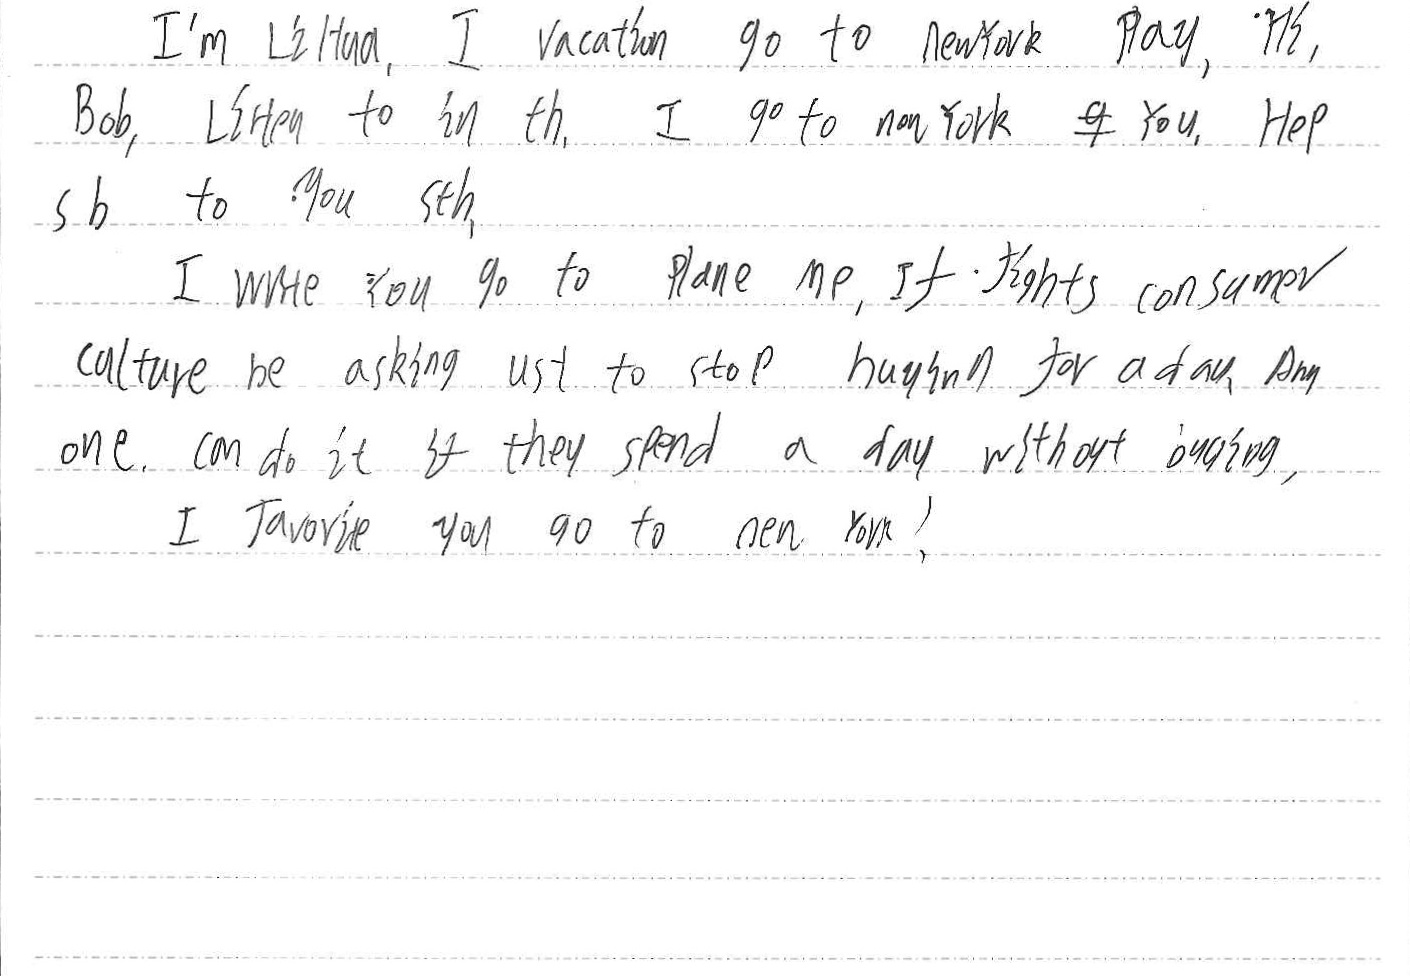 I'm Li Hua, I vacation go to newYork Play, Hi,
Bob, Listen to in th. I go to new York you. Hep
sb to you sth,
I write you go to plane me, If fights consumer
culture be asking ust to stop buyinn for a day, Any
one. can do it if they spend a day without buying,
I favorite you go to nen York!